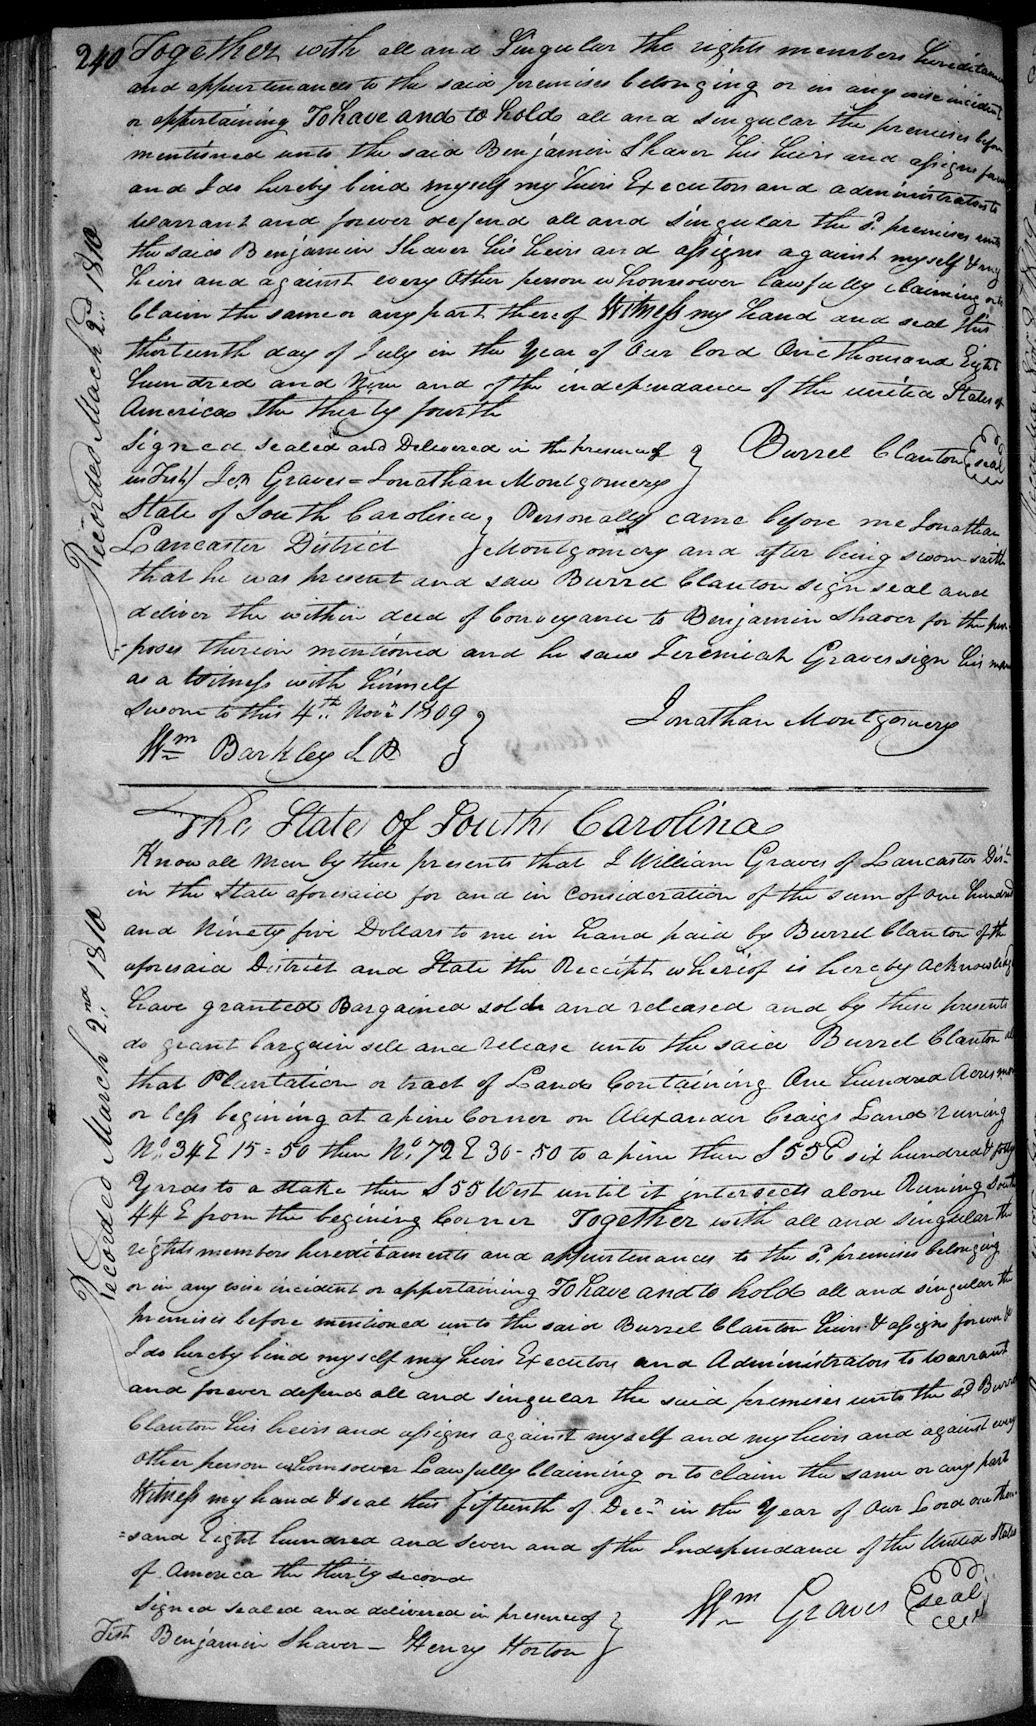 240 Together with all and Singular the rights members hereditaments
and appurtenances to the said premises belonging or in any wise incident
or appertaining To have and to hold all and singular the premises before
mentioned unto the said Benjamin Shaver his heirs and assigns forever
and I do hereby bind myself my heirs Executors and administrators to
warrant and forever defend all and singular the sd. premises unto
the said Benjamin Shaver his heirs and assigns against myself & my
heirs and against every other person whomsoever lawfully claiming or to
Claim the same or any part thereof Witness my hand and seal this
thirteenth day of July in the Year of Our lord One thousand Eight
hundred and Nine and of the independance of the united States of
America the thirty fourth
Signed sealed and Delivered in the presence of } Burrel Clanton seal
Jer Graves = Jonathan Montgomery
State of South Carolina } Personally came before me Jonathan
Lancaster District } Montgomery and after being sworn saith
that he was present and saw Burrel Clanton sign seal and
deliver the within deed of Conveyance to Benjamin Shaver for the pur-
-poses therein mentioned and he saw Jeremiah Graves sign his name
as a Witness with himself
Sworn to this 4th Novr 1809 } Jonathan Montgomery
Wm Barkley
Recorded March 2nd 1810
The State of South Carolina
Know all Men by these presents that I William Graves of Lancaster Dist
in the State aforesaid for and in consideration of the sum of one hundred
and Ninety five Dollars to me in hand paid by Burrel Clanton of the
aforesaid District and State the Receipt whereof is hereby acknowledged
have granted Bargained sold and released and by these presents
do grant bargain sell and release unto the said Burrel Clanton all
that Plantation or tract of Land Containing One hundred Acres more
or less begining at a pine Corner on Alexander Craigs Land runing
No. 34 E 15 = 50 then No. 72 E 30 - 50 to a pine then S 55 E six hundred & forty
Yards to a stake then S 55 West until it intersects alone Runing South
44 E from the begining Corner Together with all and singular the
rights members hereditaments and appurtenances to the sd. premises belonging
or in any wise incident or appertaining To have and to hold all and singular the
premises before mentioned unto the said Burrel Clanton heirs & assigns forever &
I do hereby bind myself my heirs Executors and Administrators to warrant
and forever defend all and singular the said premises unto the sd Burrel
Clanton his heirs and assigns against myself and my heirs and against every
other person whomsoever Lawfully Claiming or to claim the same or any part
Witness my hand & seal this fifteenth of Decr in the Year of Our Lord one thou
=sand Eight hundred and seven and of the Independance of the United States
of America the thirty second
Signed sealed and delivered in presence of } Wm Graves seal
Test Benjamin Shaver - Henry Horton
Recorded March 2nd 1810